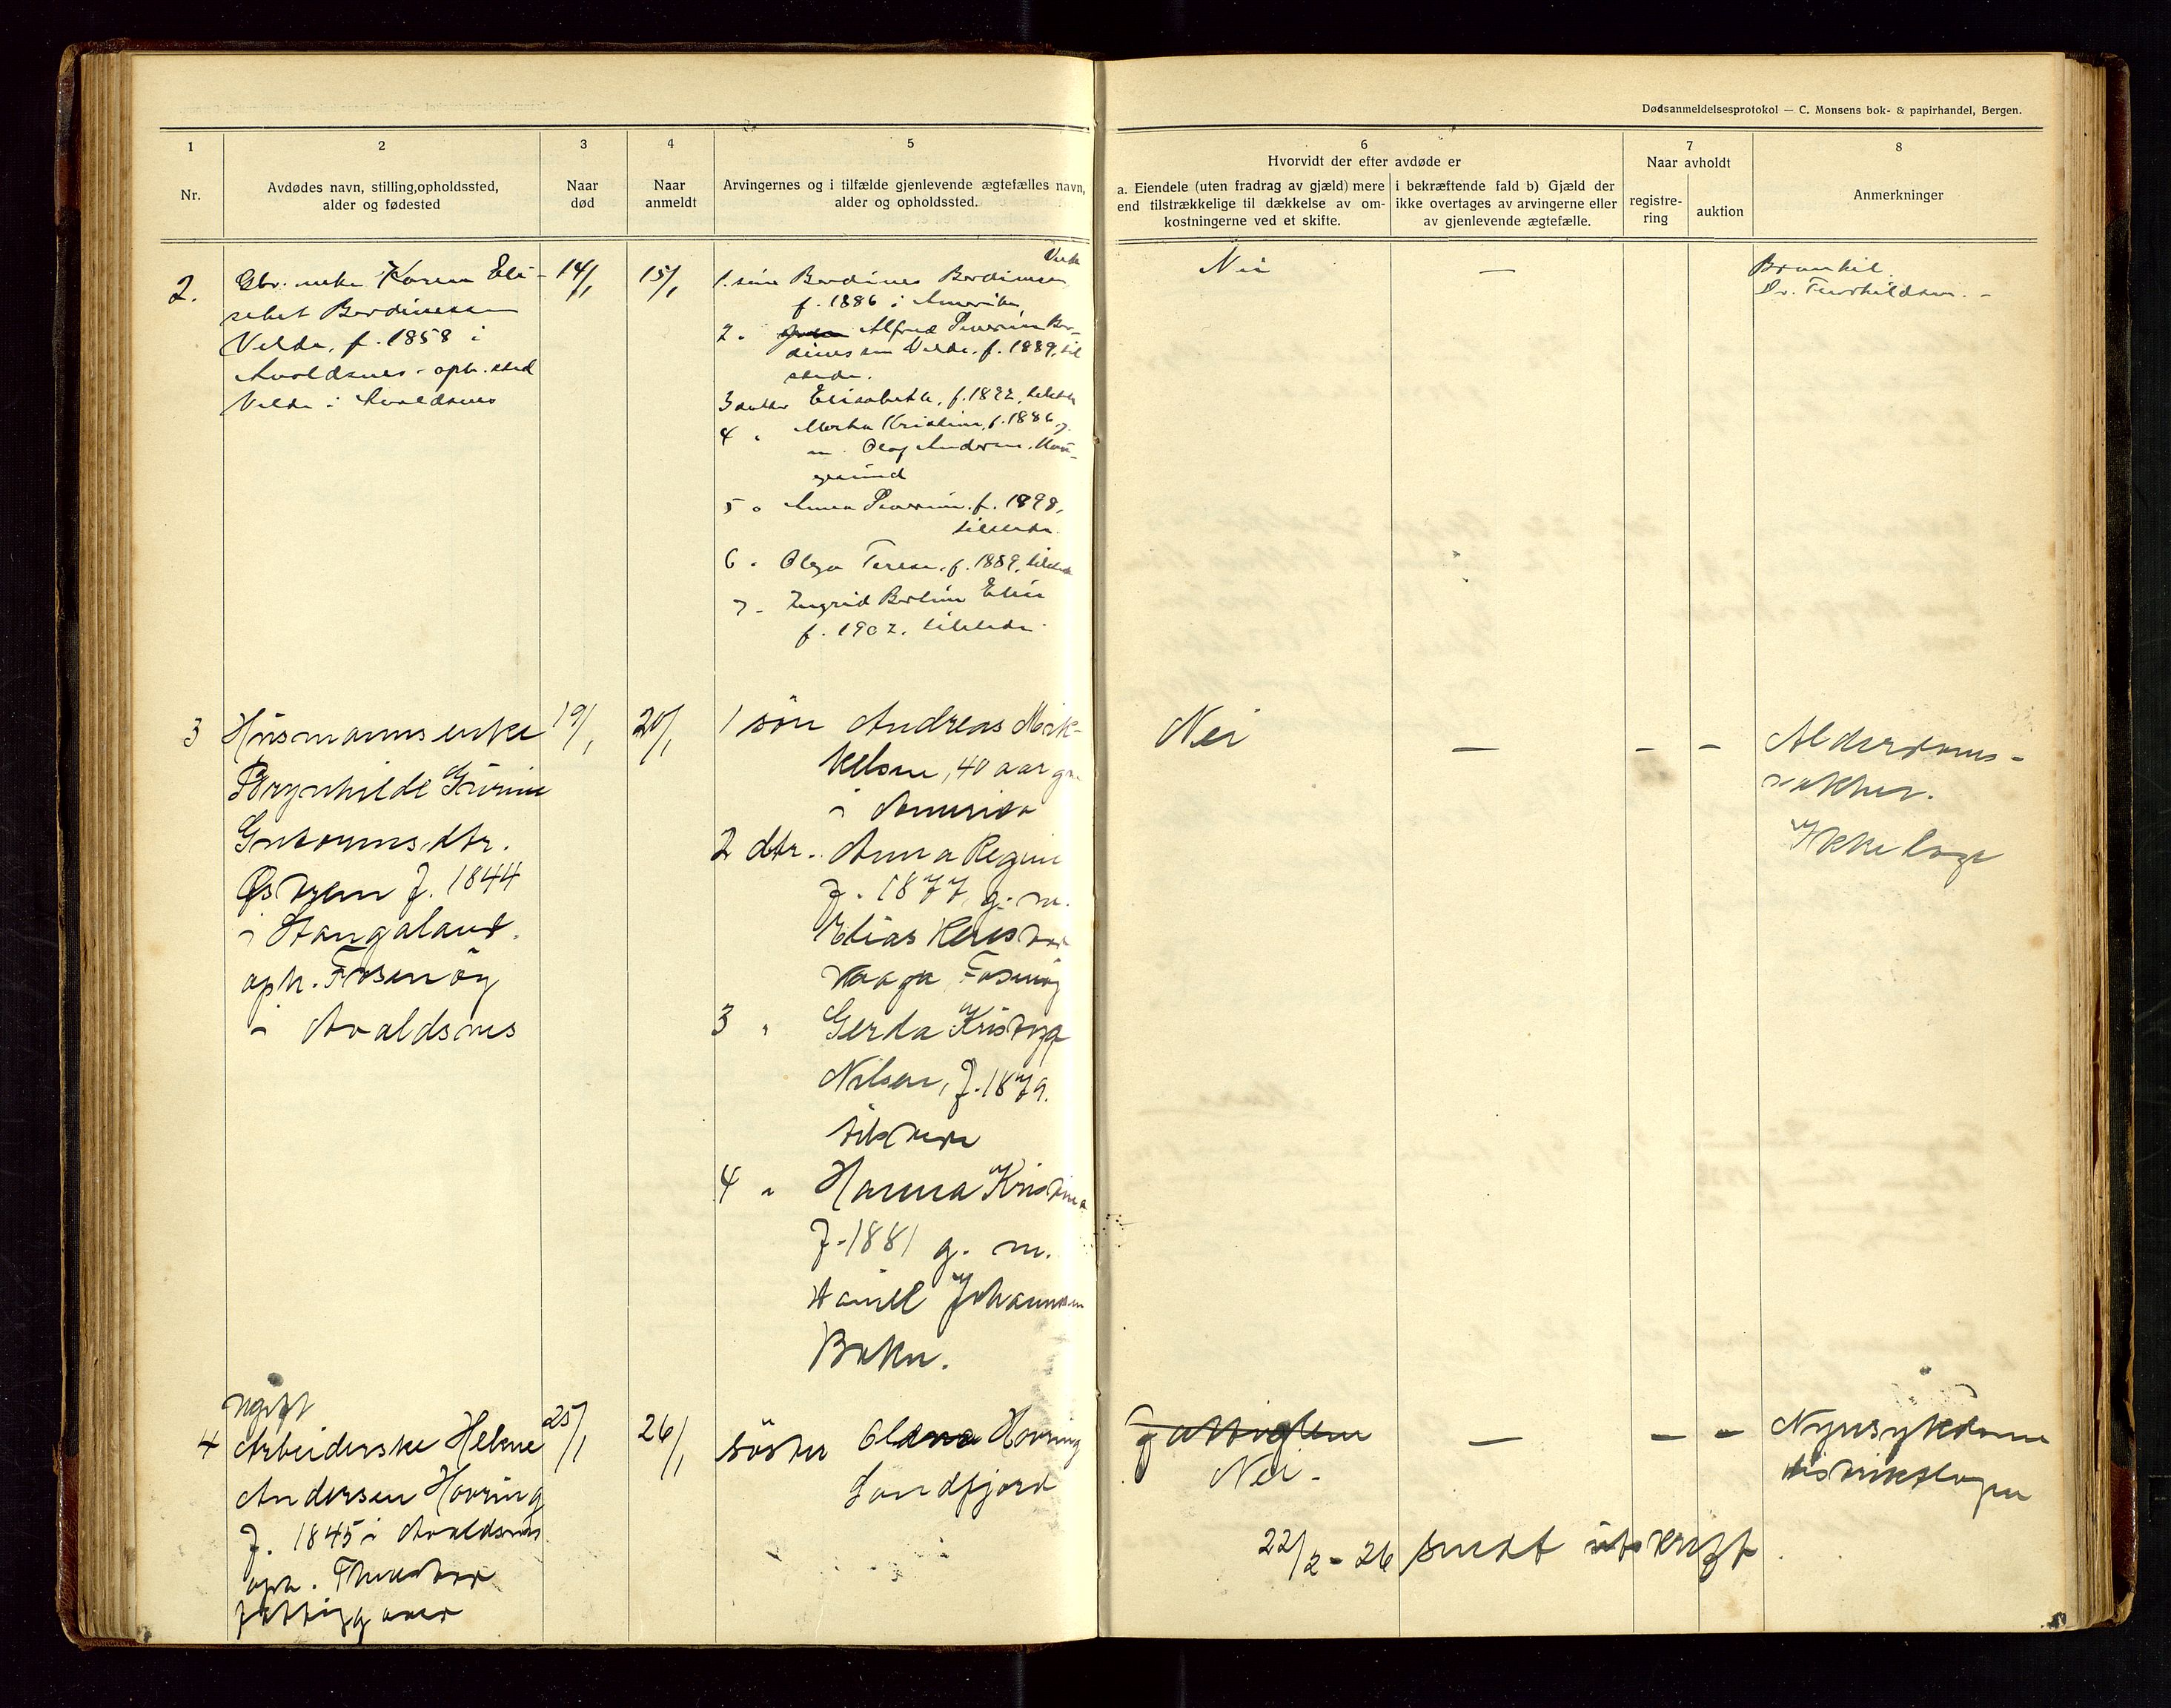 Dødsanmeldelsesprotokol — C. Monsens bok- & papirhandel, Bergen.
1
Nr.
2
Avdødes navn, stilling, opholdssted,
alder og fødested
3
Naar
død
4
Naar
anmeldt
5
Arvingernes og i tilfælde gjenlevende ægtefælles navn,
alder og opholdssted.
6
Hvorvidt der efter avdøde er
a. Eiendele (uten fradrag av gjæld) mere
end tilstrækkelige til dækkelse av om-
kostningerne ved et skifte.
i bekræftende fald b) Gjæld der
ikke overtages av arvingerne eller
av gjenlevende ægtefælle.
7
Naar avholdt
registre-
ring
auktion
8
Anmerkninger
2.
Gbr. enke Karen Eli-
sebet Bardinessen
Velde, f. 1858 i
Avaldsnes - oph. sted
Velde i Avaldsnes
14/1
15/1
Velde
1. søn Bardines Bardinesen
f. 1886 i Amerika
2. " Alfred Severin Bar-
dinessen Velde, f. 1889, til
stede.
3 datter Elisabeth, f. 1892, tilstede
4 " Marta Kristine, f. 1886, g.
m. Olaf Andersen, Hau-
gesund
5 " Anna Severine f. 1898,
tilstede
6 " Olga Terese, f. 1889, tilstede
7 - Ingrid Bertine Elise
f. 1902. tilstede
Nei
—
Bronkit.
Dr.
3
Husmannsenke
Brynhilde Gurine
Guttormsdtr.
Østrem f. 1844
i Stangaland.
oph. Fosenøy
i Avaldsnes
19/1
20/1
1 søn Andreas Mik-
kelsen, 40 aar gm
i Amerika
2 dtr. Anna Regine
f. 1877, g. m.
Elias
Vaaga Fosenøy
3 " Gerda
Nilsen, f. 1879.
tilstede
4 " Hanna Kristina
f. 1881 g. m.
Daniel Johannesen
Bokn.
Nei
—
-
-
Alderdoms-
svakhet.
Ikke læge
4
ugift
Arbeiderske Helene
Andersen Høvring
f. 1845 i Avaldsnes
oph.
fattiggaard
25/1
26/1
søster Høvring
Sandfjord
Fattiglem
Nei -
—
-
-
Nyresykdom
distriktslægen
22/2 - 26 sendt utskrift.